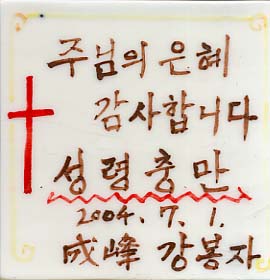 주님의 은혜
감사합니다
성령충만
2004. 7. 1.
成峰 강봉자